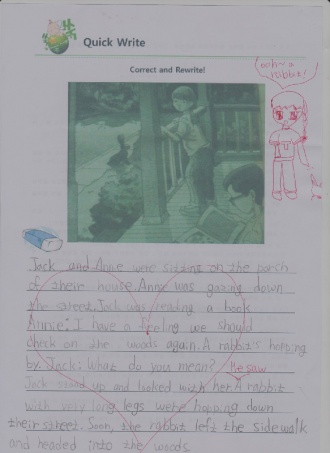 Quick Write
Correct and Rewrite!
oh~a
rabbit!
Jack and Annie were sitting on the porch
of their house. Annie was gazing down
the street. Jack was reading a book
Annie: I have a feeling we should
check on the woods again. A rabbit is hopping
by. Jack: What do you mean? He saw
Jack stood up and looked with her. A rabbit
with very long legs were hopping down
their street. Soon, the rabbit left the sidewalk
and headed into the woods